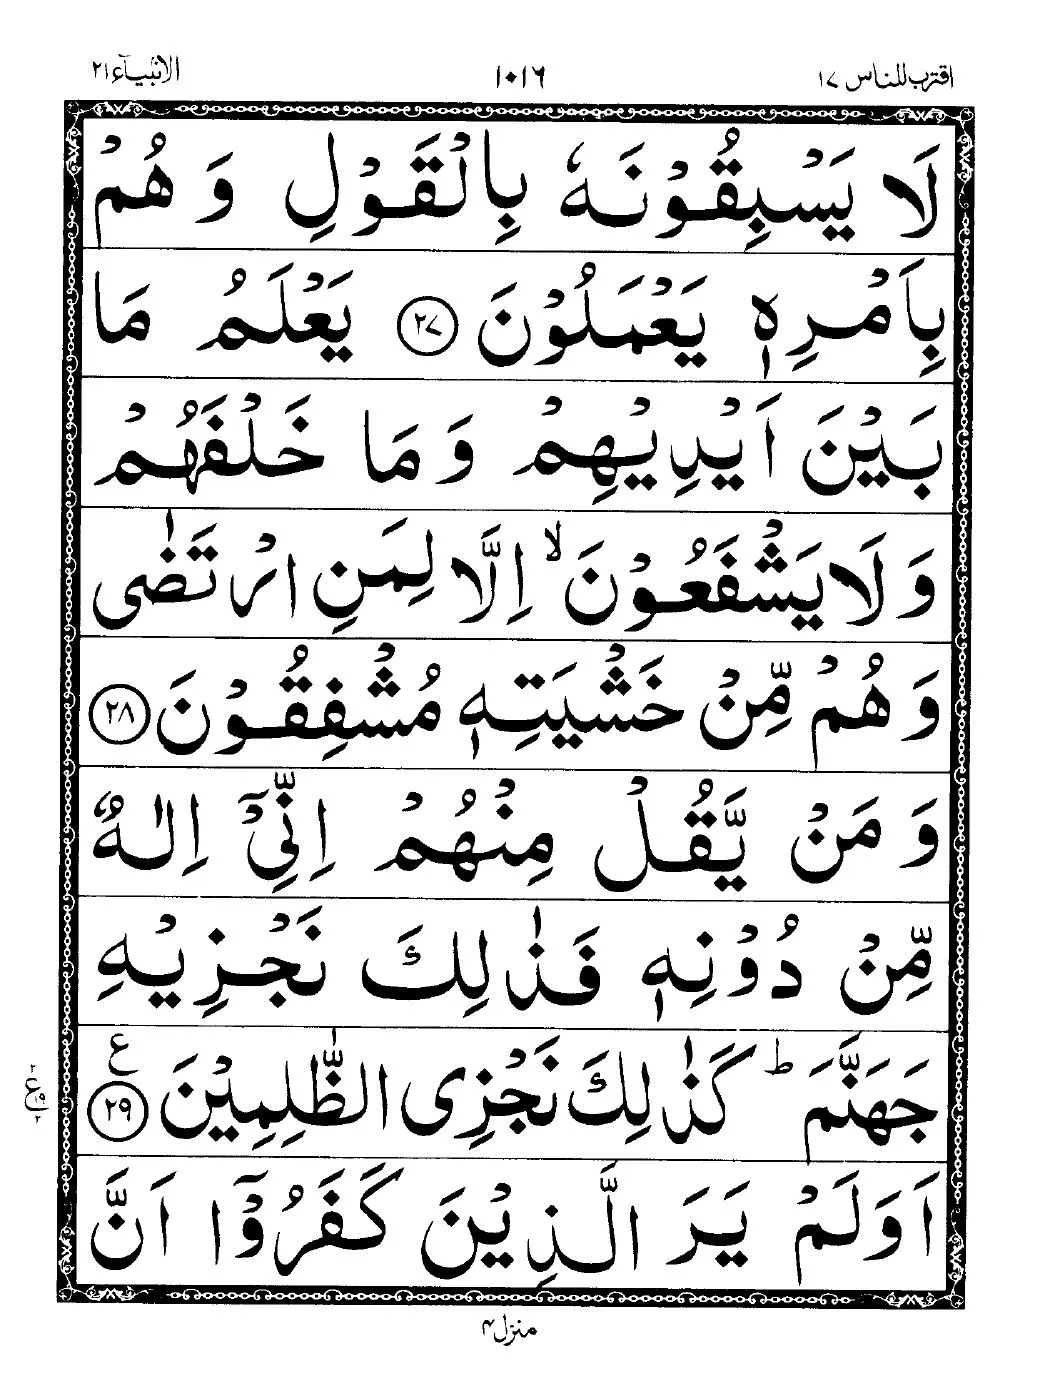 اقترب للناس ١٧ ١٠١٦ الانبيآء ٢١
لَا يَسْبِقُوْنَهٗ بِالْقَوْلِ وَهُمْ
بِاَمْرِهٖ يَعْمَلُوْنَ ﴿٢٧﴾ يَعْلَمُ مَا
بَيْنَ اَيْدِيْهِمْ وَمَا خَلْفَهُمْ
وَلَا يَشْفَعُوْنَ ۙ اِلَّا لِمَنِ ارْتَضٰى
وَهُمْ مِّنْ خَشْيَتِهٖ مُشْفِقُوْنَ ﴿٢٨﴾
وَمَنْ يَّقُلْ مِنْهُمْ اِنِّيْٓ اِلٰهٌ
مِّنْ دُوْنِهٖ فَذٰلِكَ نَجْزِيْهِ
جَهَنَّمَ ؕ كَذٰلِكَ نَجْزِى الظّٰلِمِيْنَ ﴿٢٩﴾ ع
٢ ع ١٩ ٢
اَوَلَمْ يَرَ الَّذِيْنَ كَفَرُوْٓا اَنَّ
منزل ۴